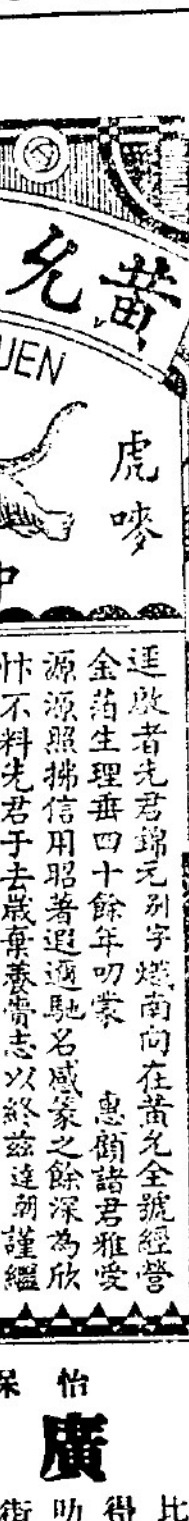 黃允
UEN
虎嘜
中
逕啟者先君錦元别字熾南向在黃允全號經營
金箔生理垂四十餘年叨蒙　惠顧諸君雅愛
源源照拂信用昭著遐邇馳名感蒙之餘深為欣
忭不料先君于去歲棄養賫志以終茲達朝謹繼
怡保
廣
比得叻街